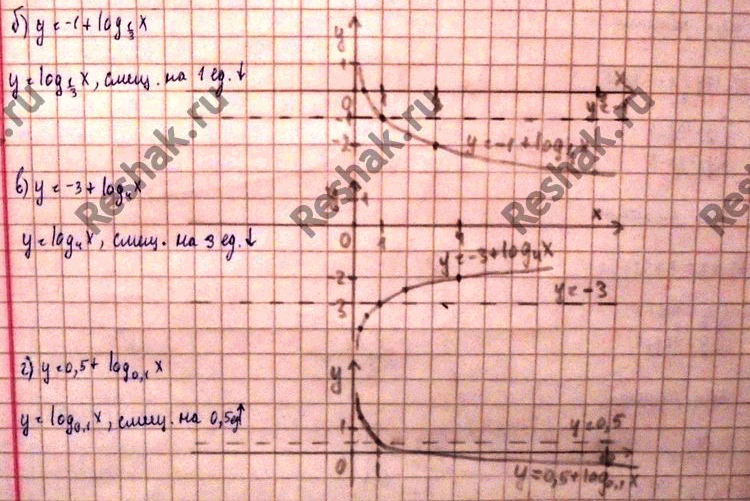 б) y = -1 + log⅓x
y = log⅓x, смещ. на 1 ед. ↓
y
1
x
0
1
3
-1
-2
y = -1 + log⅓x
в) y = -3 + log₄x
y = log₄x, смещ. на 3 ед. ↓
y
1
x
0
1
4
-2
3
y = -3 + log₄x
y = -3
г) y = 0,5 + log₀,₁x
y = log₀,₁x, смещ. на 0,5 ед ↑
y
1
0
1
10
y = 0,5
y = 0,5 + log₀,₁x
Reshak.ru
Reshak.ru
Reshak.ru
Reshak.ru